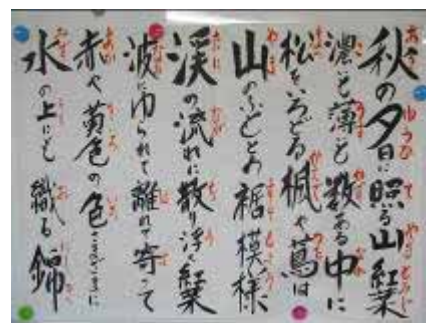 秋の夕日に照る山紅葉
濃いも薄いも数ある中に
松をいろどる楓や蔦は
山のふもとの裾模様
渓の流れに散り浮く紅葉
波にゆられて離れて寄って
赤や黄色の色さまざまに
水の上にも織る錦